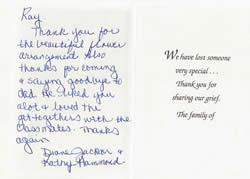 Ray,
Thank you for
the beautiful flower
arrangement. Also
thanks for coming
& saying goodbye to
dad. He liked you
alot & loved the
get-togethers with the
classmates. Thanks
again
Diane Jackson &
Kathy Hammond
We have lost someone
very special . . .
Thank you for
sharing our grief.
The family of